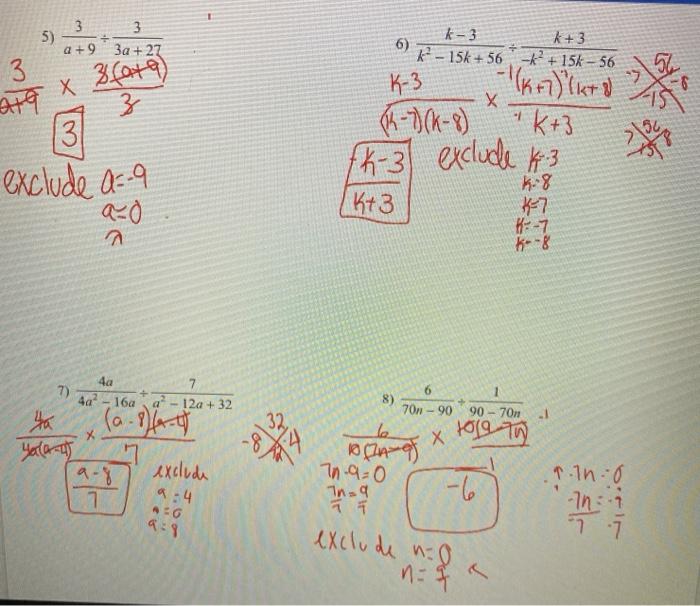 5) 3/(a + 9) ÷ 3/(3a + 27)
3/(a+9) × 3(a+9)/3
3
exclude a=-9
a=0
6) (k − 3)/(k² − 15k + 56) ÷ (k + 3)/(−k² + 15k − 56)
K-3
(K-7)(K-8)
×
-1(K+7)
K+3
56
-15
-7
-8
-K-3
K+3
exclude K=-3
K=8
K=7
K=-7
K=-8
7) 4a/(4a² − 16a) ÷ 7/(a² − 12a + 32)
4a/4a(a-4) × (a-8)(a-4)/7
32
-8 -4
12
a-8
7
exclude
a=4
a=0
a=8
8) 6/(70n − 90) ÷ 1/(90 − 70n)
-1
6/10(7n-9) × 10(9-7n)/1
7n-9=0
7n=9
7 7
-6
-7n=-9
-7 -7
exclude n=0